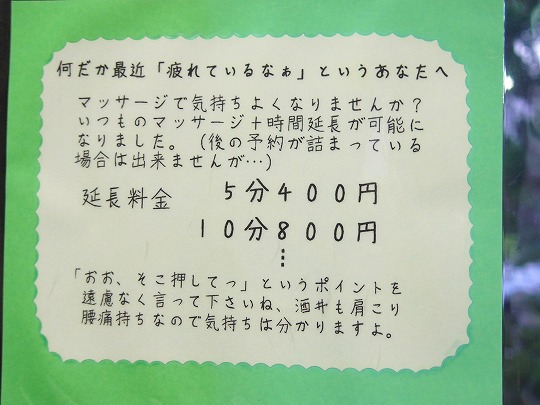 何だか最近「疲れているなぁ」というあなたへ
マッサージで気持ちよくなりませんか?
いつものマッサージ+時間延長が可能に
なりました。(後の予約が詰まっている
場合は出来ませんが…)
延長料金 5分400円
10分800円
⋮
「おお、そこ押してっ」というポイントを
遠慮なく言って下さいね、酒井も肩こり
腰痛持ちなので気持ちは分かりますよ。